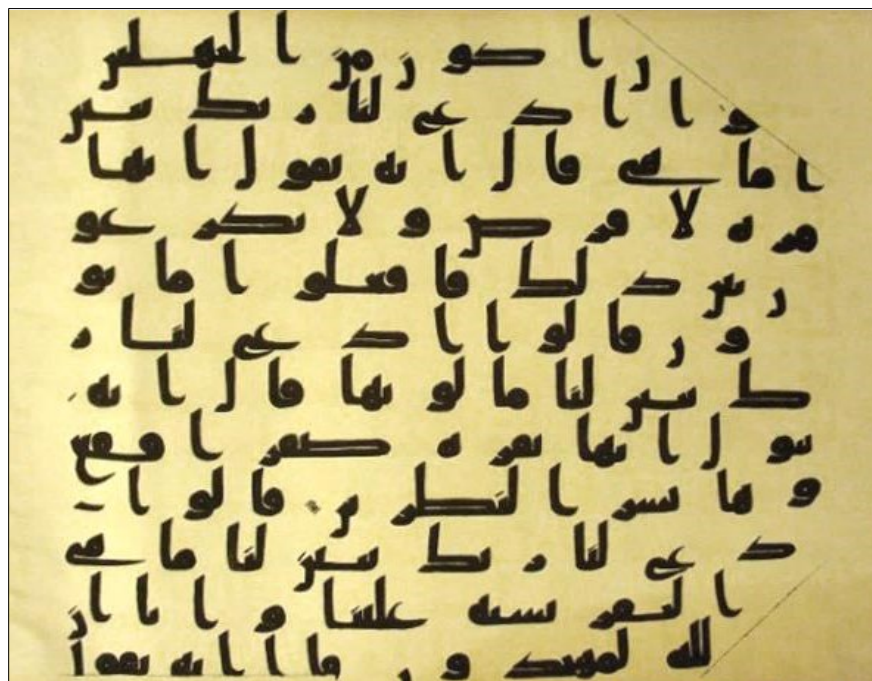 ن اكون من الجهلين
وا ادع لنا ربك يبين
ا ما هي قال انه يقول انها
بقرة لا فرض ولا بكر عو
ن بين ذلك فافعلوا ما تو
مرون قالوا ادع لنا ر
بك يبين لنا ما لونها قال انه
يقول انها بقرة صفرا فقع
لونها تسر النظرين قالوا ا
دع لنا ربك يبين لنا ما هي
ان البقر تشبه علينا وانا ان
الله لمهتدون قال انه يقول